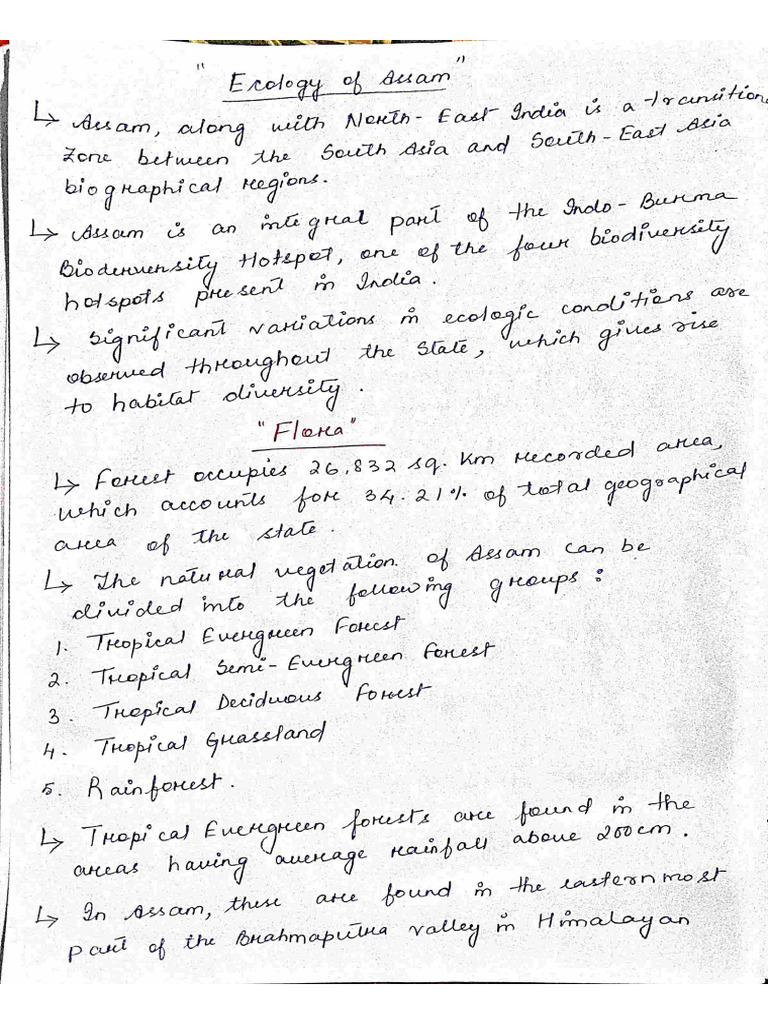 "Ecology of Assam"
↳ Assam, along with North-East India is a transition
zone between the South Asia and South-East Asia
biographical regions.
↳ Assam is an integral part of the Indo-Burma
Biodenversity Hotspot, one of the four biodiversity
hotspots present in India.
↳ Significant variations in ecologic conditions are
observed throughout the State, which gives rise
to habitat diversity.
"Flora"
↳ Forest occupies 26,832 sq. km recorded area,
which accounts for 34.21% of total geographical
area of the state.
↳ The natural vegetation of Assam can be
divided into the following groups:
1. Tropical Evergreen Forest
2. Tropical Semi-Evergreen Forest
3. Tropical Deciduous Forest
4. Tropical Grassland
5. Rainforest.
↳ Tropical Evergreen forests are found in the
areas having average rainfall above 200cm.
↳ In Assam, these are found in the easternmost
part of the Brahmaputra valley in Himalayan